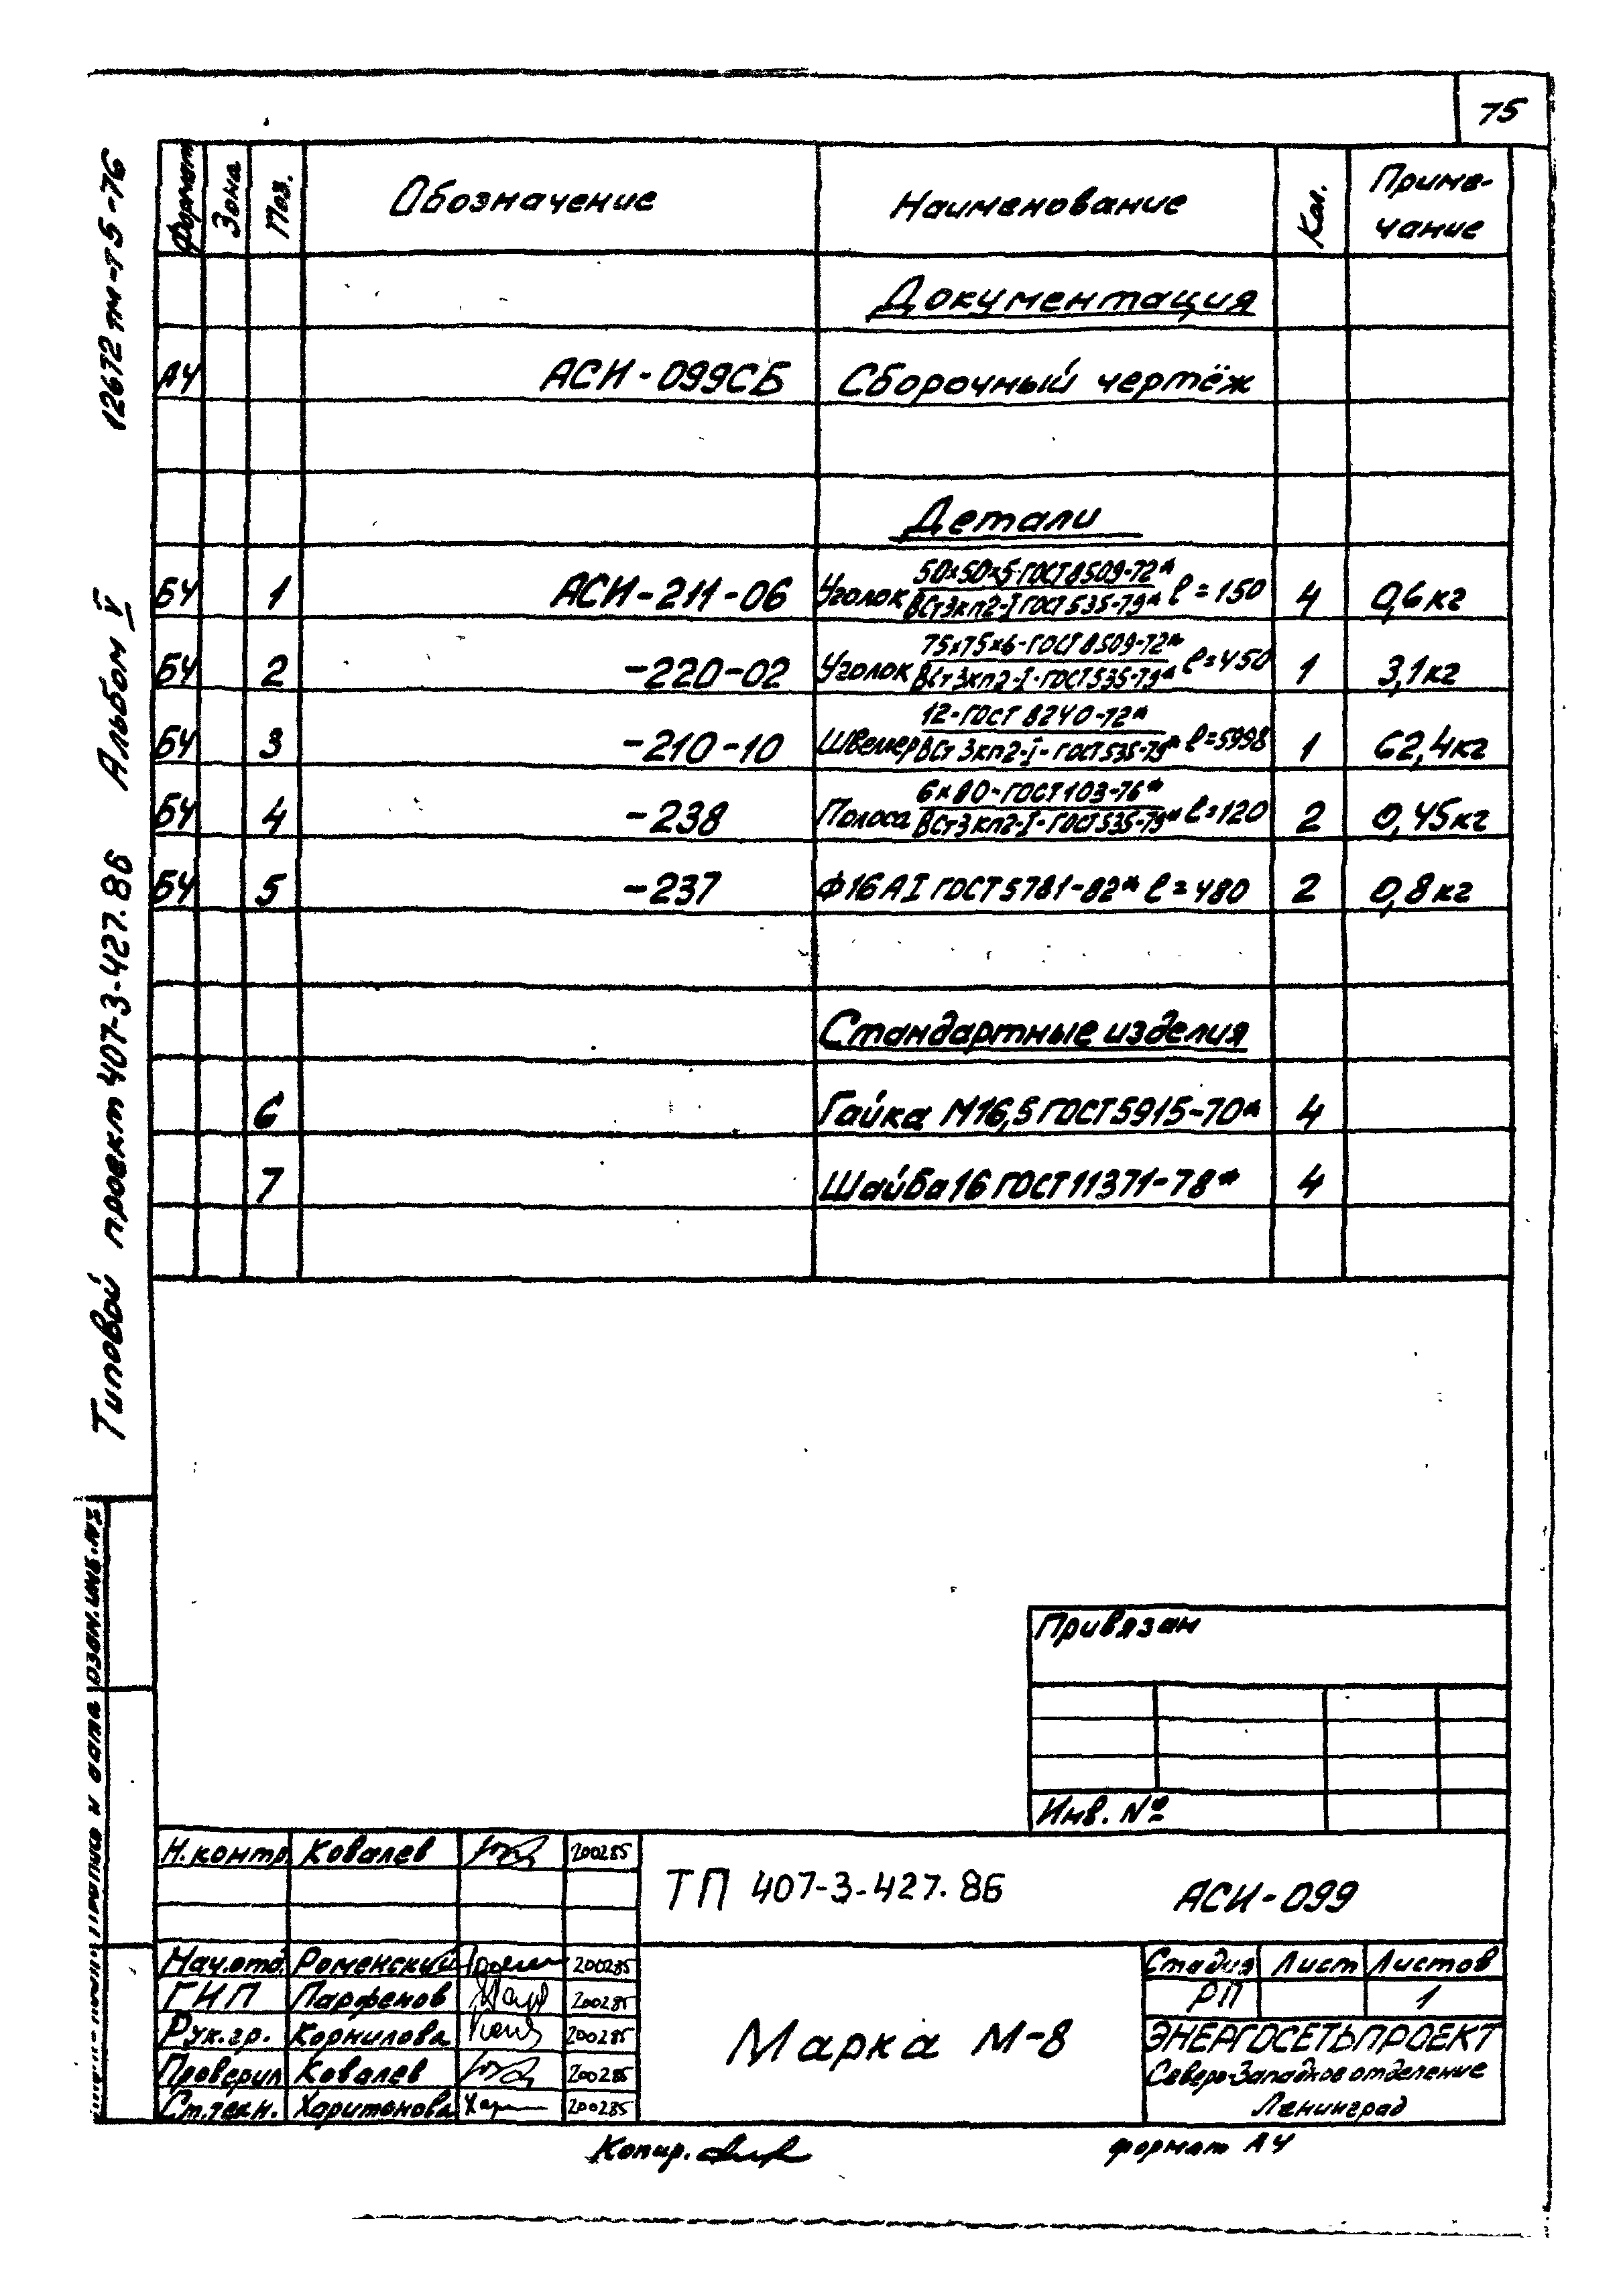 75
12672тм-т5-76
Альбом V
Типовой проект 407-3-427.86
Формат Зона Поз. Обозначение Наименование Кол. Приме-
чание
Документация
А4 АСИ-099СБ Сборочный чертёж
Детали
Б4 1 АСИ-211-06 Уголок 50×50×5-ГОСТ8509-72* ВСт3кп2-I ГОСТ535-79* ℓ=150 4 0,6кг
Б4 2 -220-02 Уголок 75×75×6-ГОСТ8509-72* ВСт3кп2-I-ГОСТ535-79* ℓ=450 1 3,1кг
Б4 3 -210-10 Швеллер 12-ГОСТ 8240-72* ВСт3кп2-I-ГОСТ535-79* ℓ=5998 1 62,4кг
Б4 4 -238 Полоса 6×80-ГОСТ103-76* ВСт3кп2-I-ГОСТ535-79* ℓ=120 2 0,45кг
Б4 5 -237 Ф16АI ГОСТ5781-82* ℓ=480 2 0,8кг
Стандартные изделия
6 Гайка М16,5 ГОСТ5915-70* 4
7 Шайба16 ГОСТ11371-78* 4
Взам.инв.№
Привязан
Инв. №
Н.контр. Ковалев 200285
ТП 407-3-427.86 АСИ-099
Нач.отд. Роменский 200285
ГИП Парфенов 200285
Рук.гр. Корнилова 200285
Проверил Ковалев 200285
Ст.техн. Харитонова 200285
Марка М-8
Стадия Лист Листов
РП 1
ЭНЕРГОСЕТЬПРОЕКТ
Северо-Западное отделение
Ленинград
Копир.
формат А4